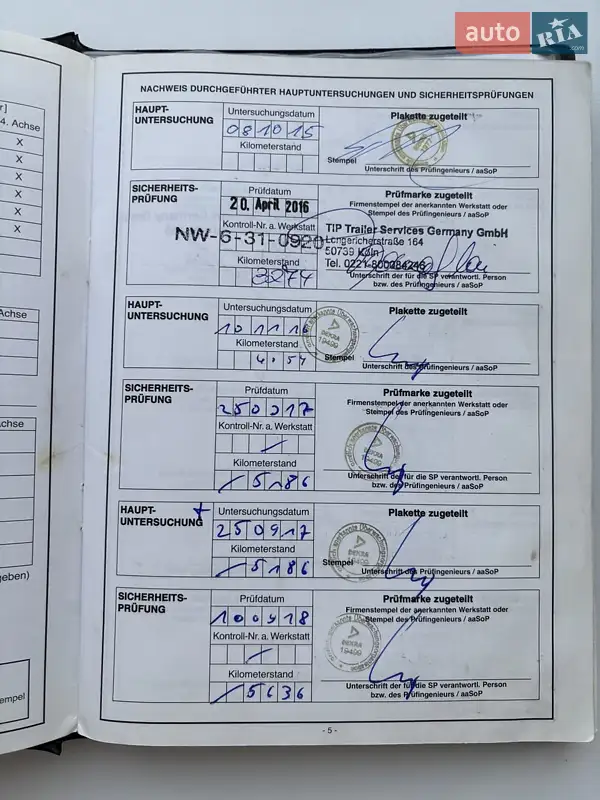 auto RIA
.com
r]
4. Achse
X
X
X
X
X
X
Achse
chse
geben)
empel
NACHWEIS DURCHGEFÜHRTER HAUPTUNTERSUCHUNGEN UND SICHERHEITSPRÜFUNGEN
HAUPT-
UNTERSUCHUNG
Untersuchungsdatum
081015
Kilometerstand
Plakette zugeteilt
Stempel
Unterschrift des Prüfingenieurs / aaSoP
SICHERHEITS-
PRÜFUNG
Prüfdatum
20. April 2016
Kontroll-Nr. a. Werkstatt
NW-6-31-0920
Kilometerstand
3274
Prüfmarke zugeteilt
Firmenstempel der anerkannten Werkstatt oder
Stempel des Prüfingenieurs / aaSoP
TIP Trailer Services Germany GmbH
Longericherstraße 164
50739 Köln
Unterschrift der für die SP verantwortl. Person
bzw. des Prüfingenieurs / aaSoP
HAUPT-
UNTERSUCHUNG
Untersuchungsdatum
101116
Kilometerstand
Plakette zugeteilt
DEKRA
Stempel
Unterschrift des Prüfingenieurs / aaSoP
SICHERHEITS-
PRÜFUNG
Prüfdatum
Kontroll-Nr. a. Werkstatt
Kilometerstand
5186
Prüfmarke zugeteilt
Firmenstempel der anerkannten Werkstatt oder
Stempel des Prüfingenieurs / aaSoP
Unterschrift der für die SP verantwortl. Person
bzw. des Prüfingenieurs / aaSoP
HAUPT-
UNTERSUCHUNG
Untersuchungsdatum
250917
Kilometerstand
5186
Plakette zugeteilt
DEKRA
Stempel
Unterschrift des Prüfingenieurs / aaSoP
SICHERHEITS-
PRÜFUNG
Prüfdatum
Kontroll-Nr. a. Werkstatt
Kilometerstand
5636
Prüfmarke zugeteilt
Firmenstempel der anerkannten Werkstatt oder
Stempel des Prüfingenieurs / aaSoP
DEKRA
Unterschrift der für die SP verantwortl. Person
bzw. des Prüfingenieurs / aaSoP
- 5 -